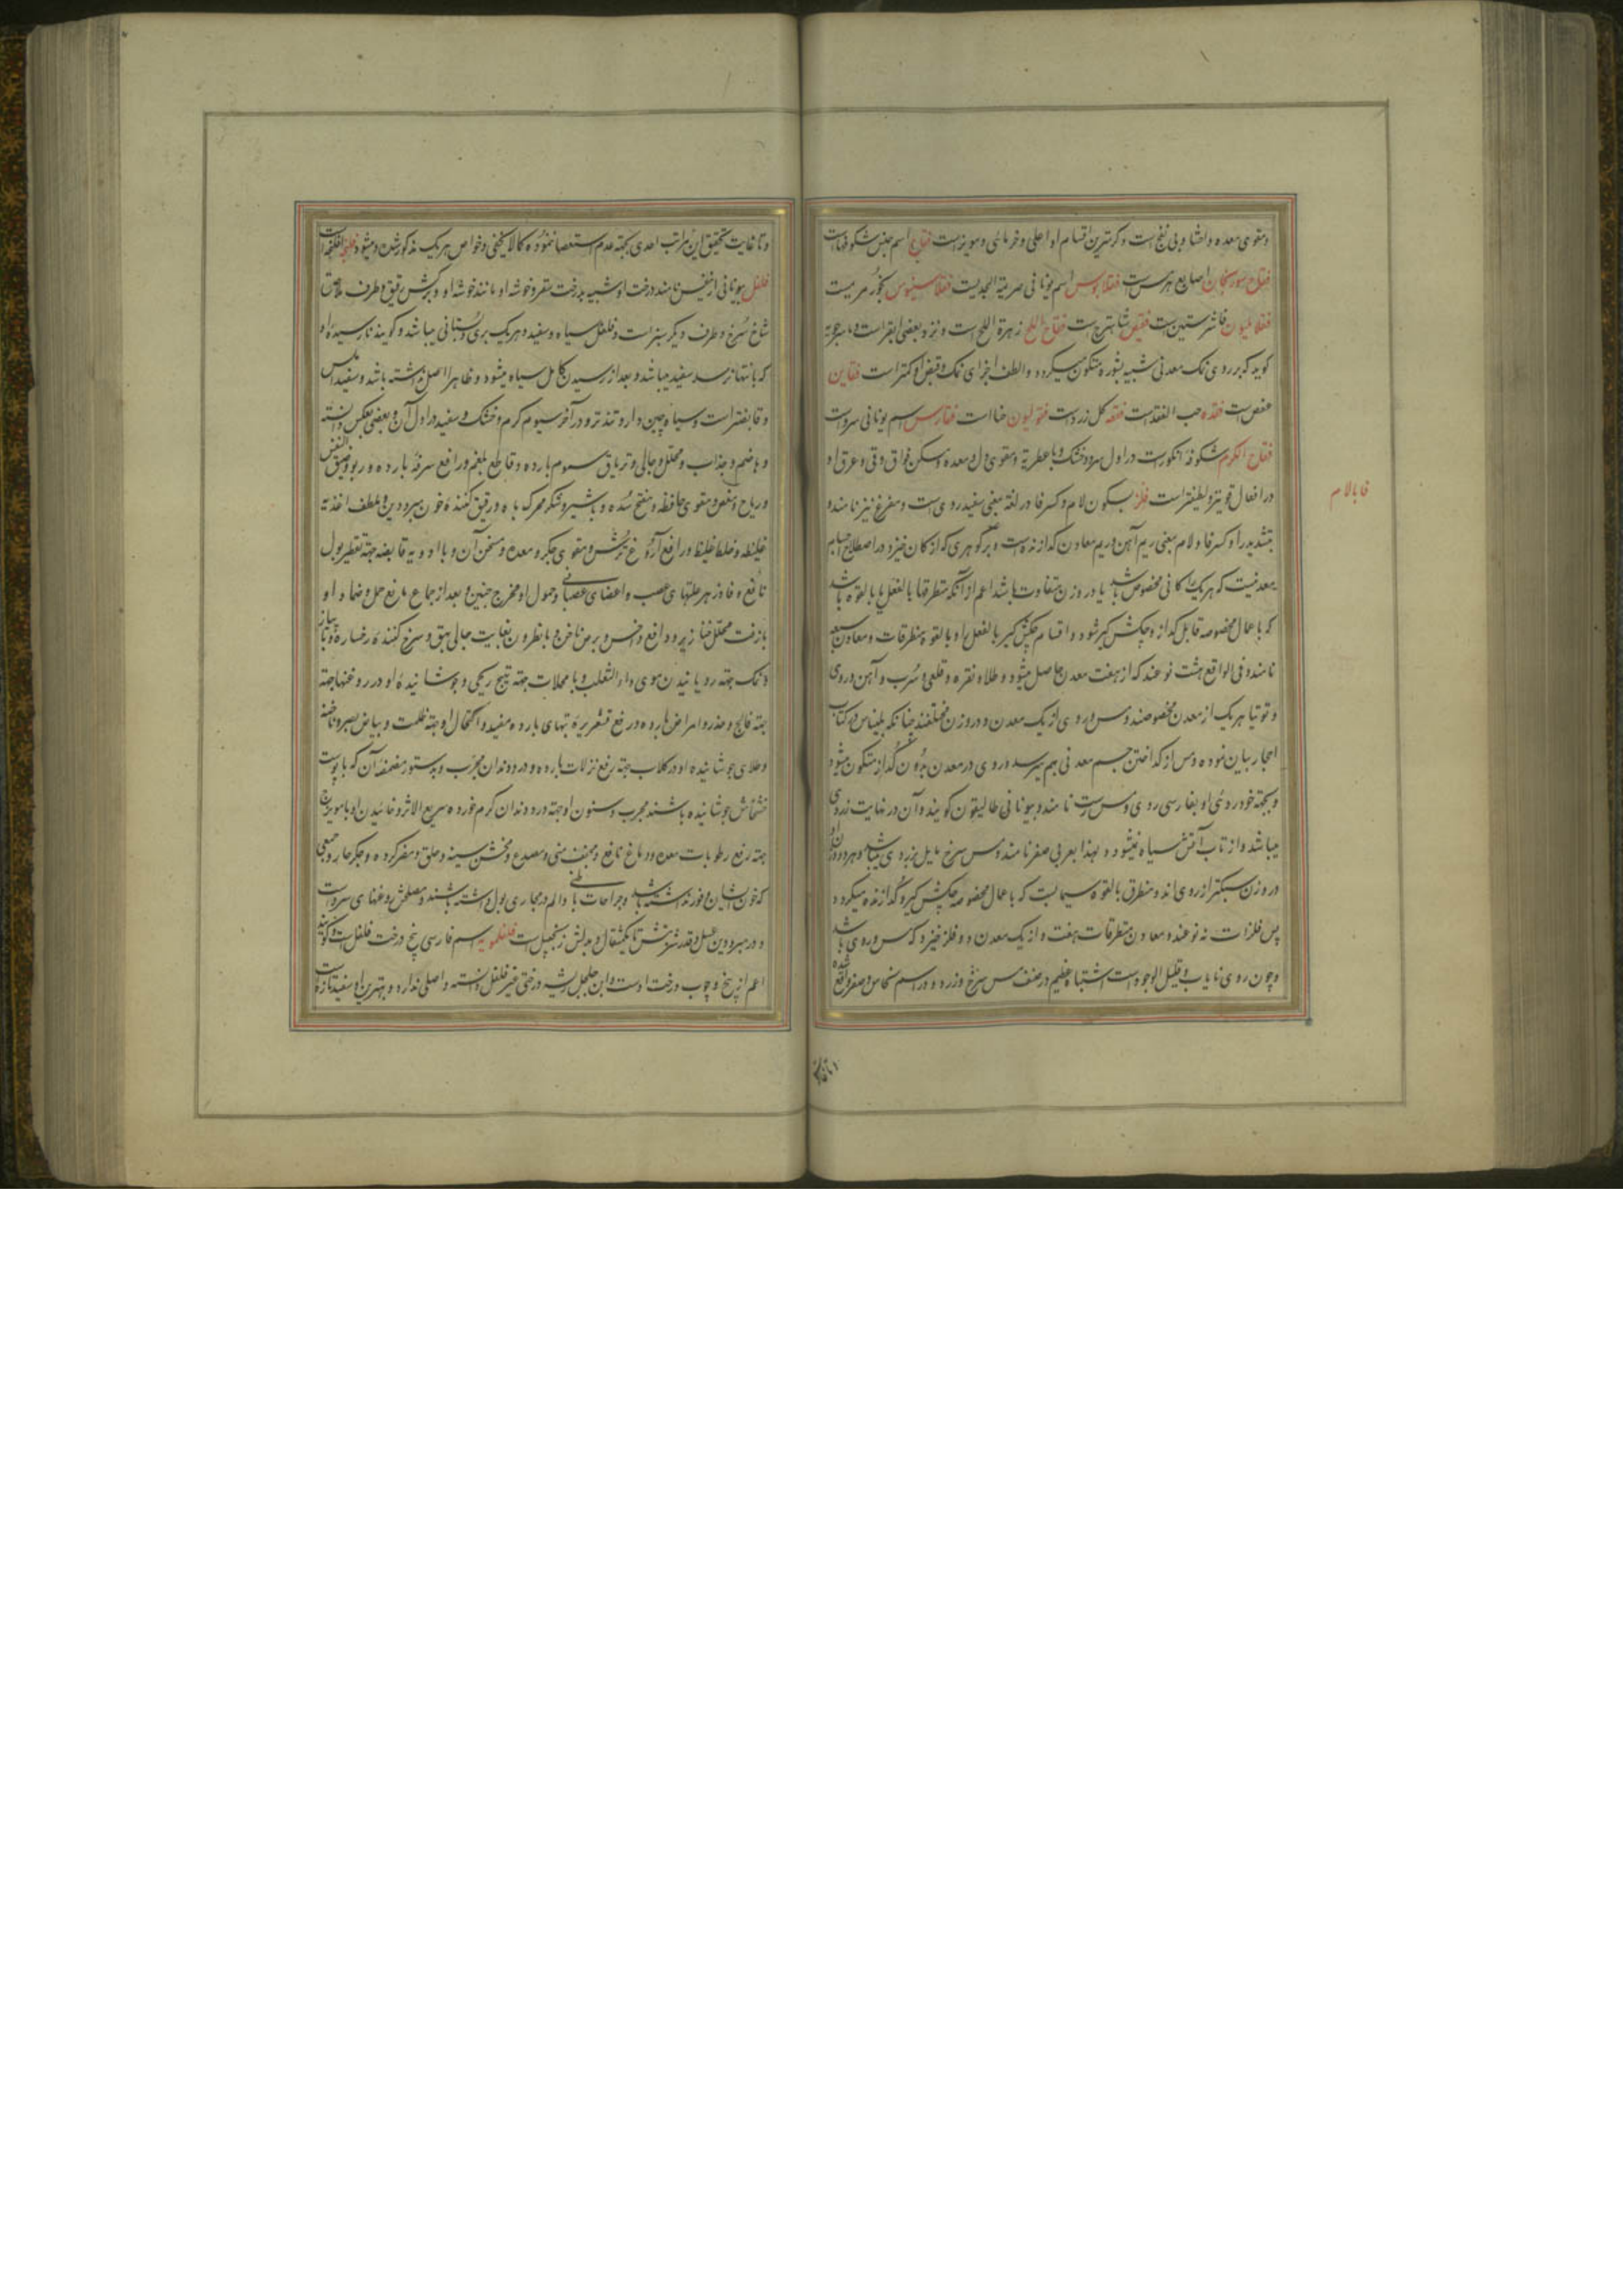 و مقوی معده و احشا و بی نفخ است و گرمترین اقسام او اعلی و خرمائی و مویزیست فقاح اسم جنس شکوفهاست
فقاح سورنجان اصابع هرمس است فقلابوس اسم یونانی مریه است فقلامینوس بخور مریمست
فقلامیون فاشرستین است فقیص شاهترج است فقاح الملح زهرة الملح است و نزد بعضی
گویند که بر روی نمک معدنی شبیه بشوره متکون میگردد و الطف اجزای نمک و قبض او کمتر است فقاین
عفص است فقده حب الفقد است فقعه گل زرد است فقولیون حنا است فقارس اسم یونانی سرو است
فقاح الکرم شکوفه انگور است در اول سرد و خشک و با عطریة و مقوی دل و معده و مسکن فواق و قی و عرق او
در افعال قویتر و لطیفتر است فلز بسکون لام و کسر فا در لغة بمعنی سفید روی است و مفرغ نیز نامند و
بتشدید را و کسر فا و لام بمعنی ریم آهن و ریم معادن گدازنده است و هر گوهری که از کان خیزد و در اصطلاح
معدنیست که هر یک را کانی مخصوص باشد یا در وزن متفاوت باشد اعم از آنکه متطرقها بالفعل یا بالقوه باشد
که باعمال مخصوصه قابل گداز و چکش گیر شود و اقسام چکش گیر بالفعل او بالقوه متطرقات و معادن سبعه
نامند و فی الواقع هشت نوعند که از هفت معدن حاصل میشود و طلا و نقره و قلعی و سرب و آهن و روی
و توتیا هر یک از معدن مخصوصند و مس و روی از یک معدن و در وزن مختلفند چنانکه بلیناس در کتاب
احجار بیان نموده و مس از گداختن جسم معدنی بهم میرسد و روی در معدن بدون گداز متکون میشود
و بجهة خودروئی او بفارسی روی و مس رست نامند و بیونانی طالیقون گویند و آن در نهایت زردی
میباشد و از تاب آتش سیاه نمیشود و لهذا بعربی صفر نامند و مس سرخ مایل بزردی میباشد و هر دو
در وزن سبکتر از روی اند و متطرق بالقوه سیمابست که باعمال مخصوصه چکش گیر و گدازنده میگردد
پس فلزات نه نوعند و معادن متطرقات هفت و از یک معدن دو فلز خیزد که مس و روی باشد
و چون روی نایاب و قلیل الوجود است اشتباه عظیم در صنف مس سرخ و زرد و در اسم نحاس و صفر واقع شده
فا با لام
و تا غایت تحقیق این مراتب احدی بجهة عدم استقصا ننموده کما لا یخفی و خواص هر یک مذکور شده و میشود فلنجه افلنجه است
فلفل بیونانی نامند درخت او شبیه بدرخت سفر و خوشه او مانند خوشه او و برگش رقیق و طرف ملاصق
شاخ سرخ و طرف دیگر سبز است و فلفل سیاه و سفید و هر یک بری و بستانی میباشد و گویند نارسیده او
که بانتها نرسد سفید میباشد و بعد از رسیدن کامل سیاه میشود و ظاهرا اصل نداشته باشد و سفید املس
و قابضتر است و سیاه چین دار و تندتر و در آخر سیوم گرم و خشک و سفید در اول آن و بعضی بعکس دانسته
و هاضم و جذاب و محلل و جالی و تریاق سموم بارده و قاطع بلغم و رافع سرفه بارده و ربو و ضیق النفس
و ریاح و مغص و مقوی حافظه و مفتح سده و با شیر و شکر محرک باه و رقیق کننده خون مبرودین و ملطف اغذیه
غلیظه و خلط غلیظ و رافع آروغ ترش و مقوی جگر و معده و مسخن آن و با ادویه قابضه جهة تقطیر بول
نافع و فادزهر علتهای عصب و اعضای عصبانی و حمول او مخرج جنین و بعد از جماع مانع حمل و ضماد او
با زفت محلل خنازیر و رافع داخس و برص ناخن و با نطرون بغایت جالی بهق و سرخ کننده رخساره و با پیاز
و نمک جهة رویانیدن موی داء الثعلب و با محللات جهة تهبج ریحی و جوشانیده او در روغنها جهة
جهة فالج و خدر و امراض بارده و رفع قشعریره تبهای بارده مفید و اکتحال او جهة ظلمت و بیاض بصر و ناخنه
و طلای جوشانیده او در گلاب جهة رفع نزلات بارده و درد دندان مجرب و بدستور مضمضه آن که با پوست
خشخاش جوشانیده باشند مجرب و سنون او جهة درد دندان کرم خورده سریع الاثر و خائیدن او با مویزج
جهة رفع رطوبات معده و دماغ نافع و مجفف منی و مصدع و مخشن سینه و حلق و مضر گرده و جگر حار و جمعی
که خون ایشان سوزنده شده باشد و جراحات باطنی و الم در مجاری بول داشته باشند و مصلحش روغنهای سرد است
و در مبرودین عسل و قدر شربتش تا یکمثقال و بدلش زنجبیل است فلفلمویه اسم فارسی بیخ درخت فلفل است گویند
اعم از بیخ و چوب درخت اوست و ابن جلجل ریشه درختی غیر فلفل دانسته و اصلی ندارد و بهترین او سفید تازه